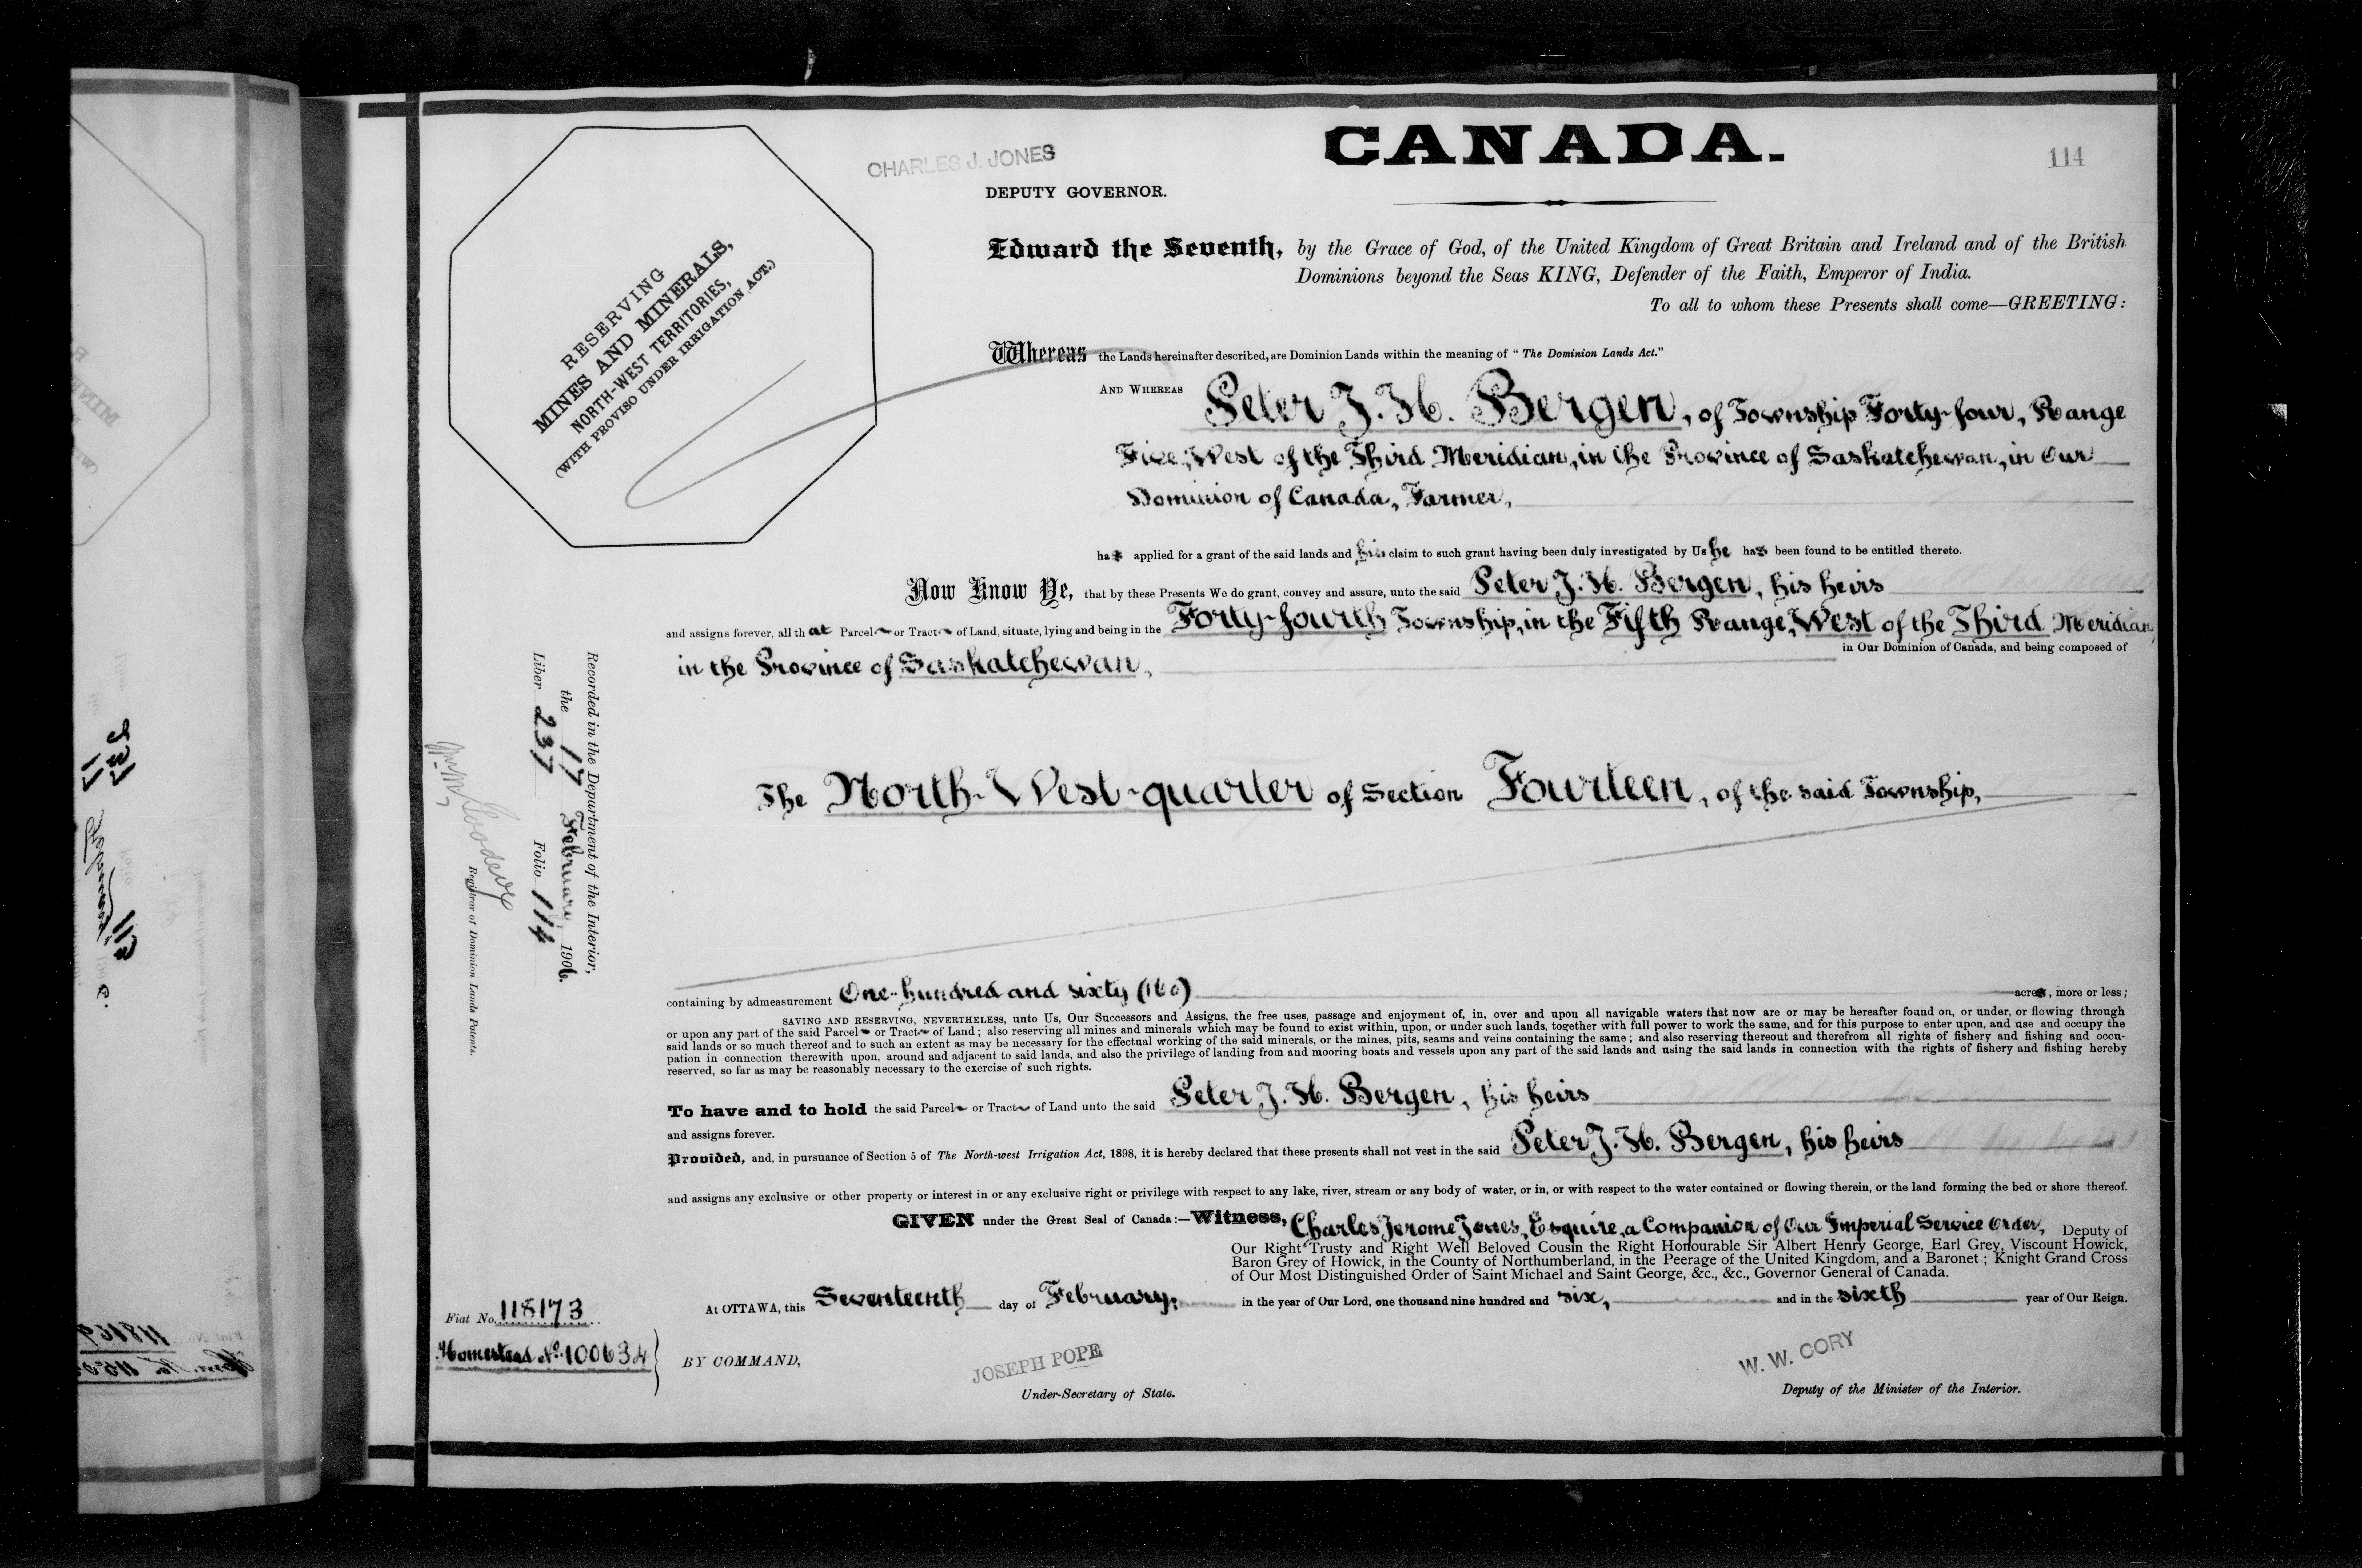 CANADA.
114
CHARLES J. JONES
DEPUTY GOVERNOR.
RESERVING
MINES AND MINERALS,
NORTH-WEST TERRITORIES,
(WITH PROVISO UNDER IRRIGATION ACT.)
Edward the Seventh, by the Grace of God, of the United Kingdom of Great Britain and Ireland and of the British
Dominions beyond the Seas KING, Defender of the Faith, Emperor of India.
To all to whom these Presents shall come—GREETING:
Whereas the Lands hereinafter described, are Dominion Lands within the meaning of "The Dominion Lands Act."
AND WHEREAS Peter J. H. Bergen, of Township Forty-four, Range
Five, West of the Third Meridian, in the Province of Saskatchewan, in Our
Dominion of Canada, Farmer,
has applied for a grant of the said lands and his claim to such grant having been duly investigated by Us he has been found to be entitled thereto.
Now Know Ye, that by these Presents We do grant, convey and assure, unto the said Peter J. H. Bergen, his heirs
and assigns forever, all that Parcel or Tract of Land, situate, lying and being in the Forty-fourth Township, in the Fifth Range, West of the Third Meridian,
in the Province of Saskatchewan,
in Our Dominion of Canada, and being composed of
The North-West-quarter of Section Fourteen, of the said Township,
Recorded in the Department of the Interior,
the 17 February 1906.
Liber 237 Folio 114
Registrar of Dominion Lands Patents.
containing by admeasurement One-hundred and sixty (160) acres, more or less;
SAVING AND RESERVING, NEVERTHELESS, unto Us, Our Successors and Assigns, the free uses, passage and enjoyment of, in, over and upon all navigable waters that now are or may be hereafter found on, or under, or flowing through
or upon any part of the said Parcel or Tract of Land; also reserving all mines and minerals which may be found to exist within, upon, or under such lands, together with full power to work the same, and for this purpose to enter upon, and use and occupy the
said lands or so much thereof and to such an extent as may be necessary for the effectual working of the said minerals, or the mines, pits, seams and veins containing the same; and also reserving thereout and therefrom all rights of fishery and fishing and occu-
pation in connection therewith upon, around and adjacent to said lands, and also the privilege of landing from and mooring boats and vessels upon any part of the said lands and using the said lands in connection with the rights of fishery and fishing hereby
reserved, so far as may be reasonably necessary to the exercise of such rights.
To have and to hold the said Parcel or Tract of Land unto the said Peter J. H. Bergen, his heirs
and assigns forever.
Provided, and, in pursuance of Section 5 of The North-west Irrigation Act, 1898, it is hereby declared that these presents shall not vest in the said Peter J. H. Bergen, his heirs
and assigns any exclusive or other property or interest in or any exclusive right or privilege with respect to any lake, river, stream or any body of water, or in, or with respect to the water contained or flowing therein, or the land forming the bed or shore thereof.
GIVEN under the Great Seal of Canada:—Witness, Charles Jerome Jones, Esquire, a Companion of Our Imperial Service Order, Deputy of
Our Right Trusty and Right Well Beloved Cousin the Right Honourable Sir Albert Henry George, Earl Grey, Viscount Howick,
Baron Grey of Howick, in the County of Northumberland, in the Peerage of the United Kingdom, and a Baronet; Knight Grand Cross
of Our Most Distinguished Order of Saint Michael and Saint George, &c., &c., Governor General of Canada.
At OTTAWA, this Seventeenth day of February, in the year of Our Lord, one thousand nine hundred and six, and in the sixth year of Our Reign.
Fiat No. 118173
Homestead No. 100634
BY COMMAND,
JOSEPH POPE
Under-Secretary of State.
W. W. CORY
Deputy of the Minister of the Interior.